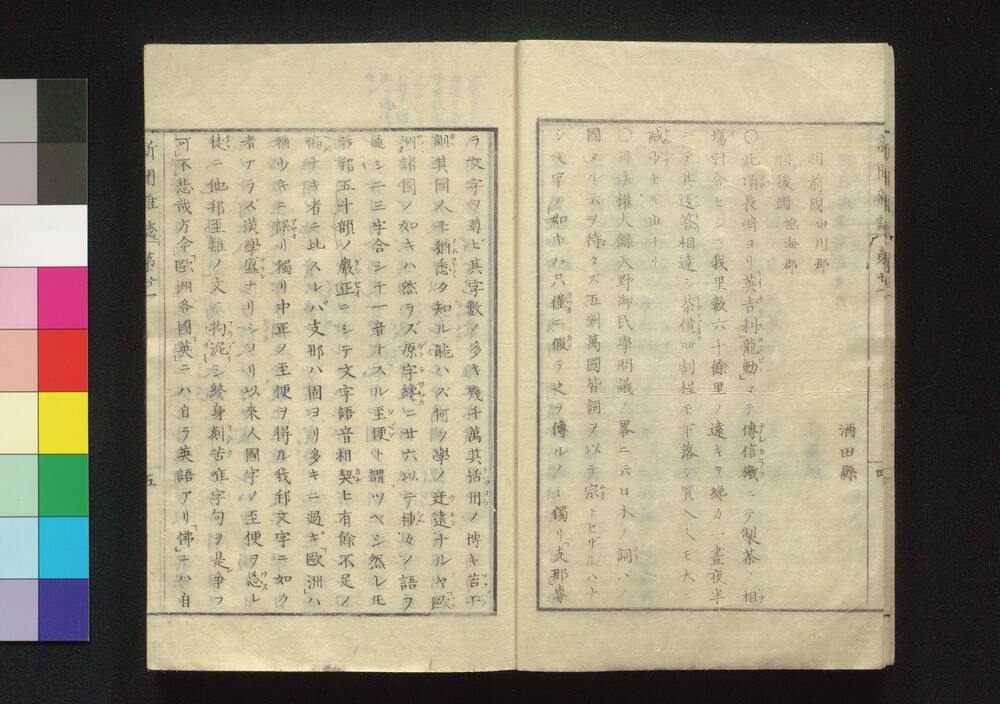 新聞雜誌 第廿一
四
羽前國田川郡
羽後國飽海郡
酒田縣
〇此頃長崎ヨリ英吉利龍動マテ傳信機ニテ製茶ノ相
塲計合セシニ我里數六千餘里ノ遠キヲ纔カ一晝夜半
ニテ其返答相達シ茶價四割程モ下落シ買入レモ大ニ
減少セル由ナリ
〇司法權大録天野御民學問議ノ畧ニ六日本ノ詞バノ
國タル云ヲ待タズ五洲萬國皆詞ヲ以テ宗トセザルハナ
シ文字ノ如キハ只僅ニ假テ之ヲ傳ルノミ獨リ支那專
ラ文字ヲ尊ビ其字數ノ多キ幾千萬其活用ノ博キ若干
訓其國人モ猶悉ク知ル能ハズ何ソ學ノ迂遠ナルヤ歐
洲諸國ノ如キハ然ラズ原字纔ニ廿六以テ種々ノ語ヲ
通シ二三字合シテ一音トスル至便ト謂ツベシ然レ𪜈
我邦五十韻ノ嚴正ニシテ文字語音相契ヒ有餘不足ノ
偏ナキ者ニ比スルバ支那ハ固ヨリ多キニ過ギ歐洲ハ
猶少キニ誤リ獨リ中正ノ至便ヲ得ル我邦文字ニ如ク
者アラズ漢學盛ナリシヨリ以來人國字ノ至便ヲ忘レ
徒ニ他邦至難ノ文ニ拘泥シ終身刻苦唯字句ヲ是爭フ
可不悲哉方今歐洲各國英ニハ自ラ英語アリ佛ニハ自
新聞雜誌 第廿一
五